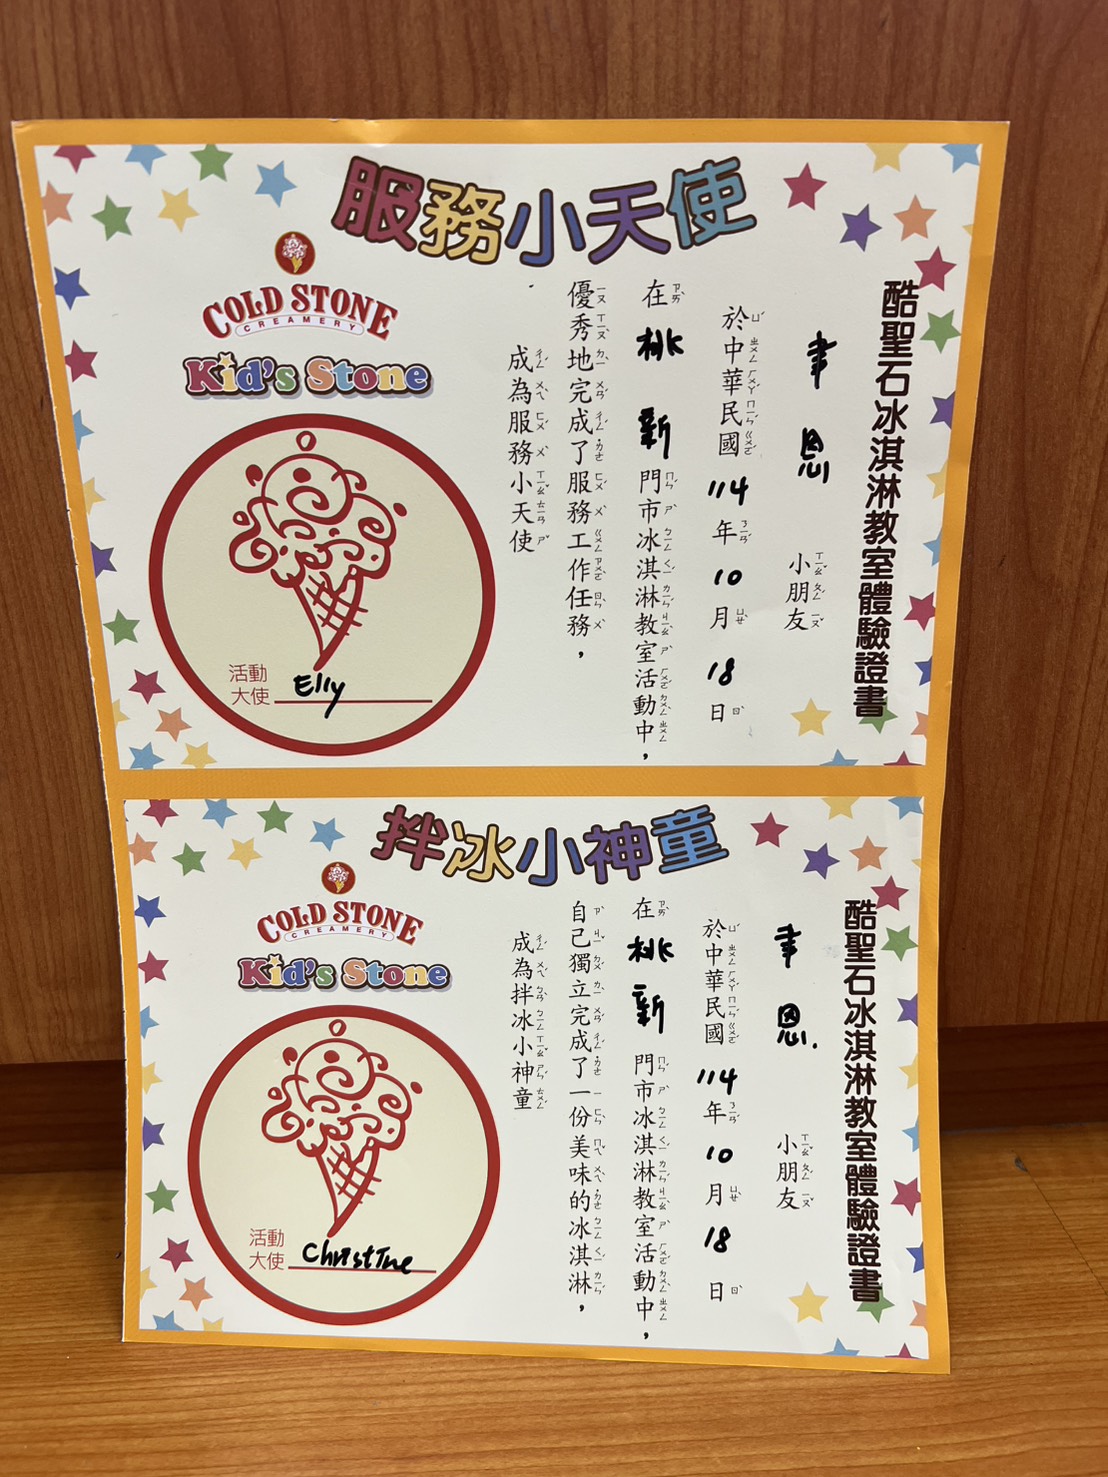 服務小天使
COLD STONE
CREAMERY
Kid's Stone
酷聖石冰淇淋教室體驗證書
聿恩 小朋友
於中華民國114年10月18日
在桃新門市冰淇淋教室活動中，
優秀地完成了服務工作任務，
成為服務小天使
活動
大使 Elly
拌冰小神童
COLD STONE
CREAMERY
Kid's Stone
酷聖石冰淇淋教室體驗證書
聿恩. 小朋友
於中華民國114年10月18日
在桃新門市冰淇淋教室活動中，
自己獨立完成了一份美味的冰淇淋，
成為拌冰小神童
活動
大使 Christine